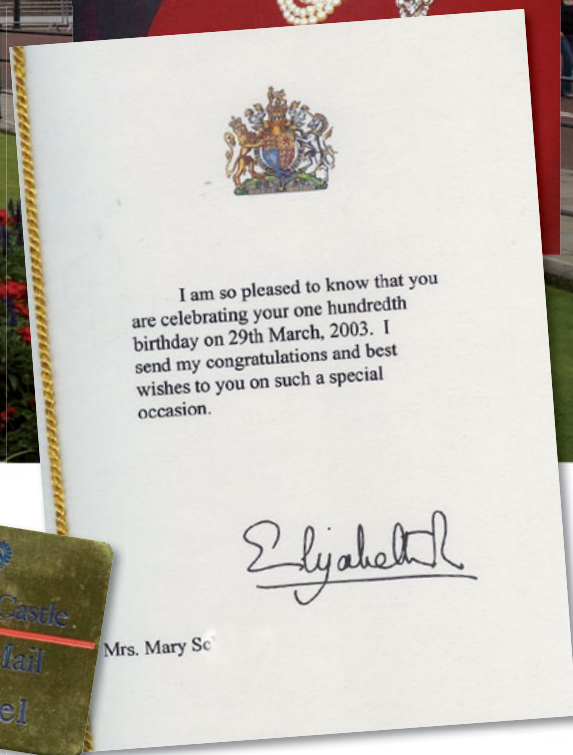 I am so pleased to know that you
are celebrating your one hundredth
birthday on 29th March, 2003. I
send my congratulations and best
wishes to you on such a special
occasion.
Elizabeth R
Mrs. Mary Sc
Castle
Mail